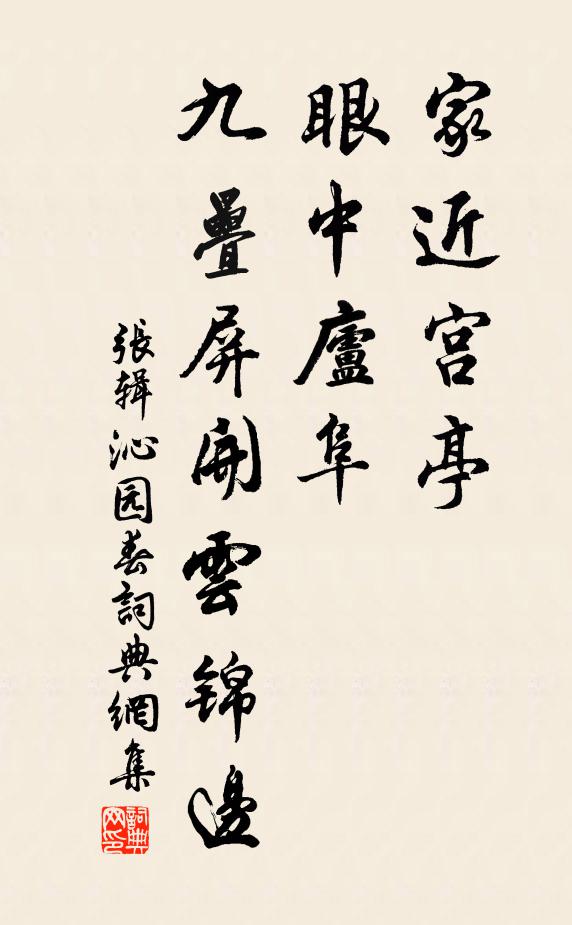 家近宫亭
眼中廬阜
九疊屏開雲錦邊
張辑沁园春詞典網集
詞典网印